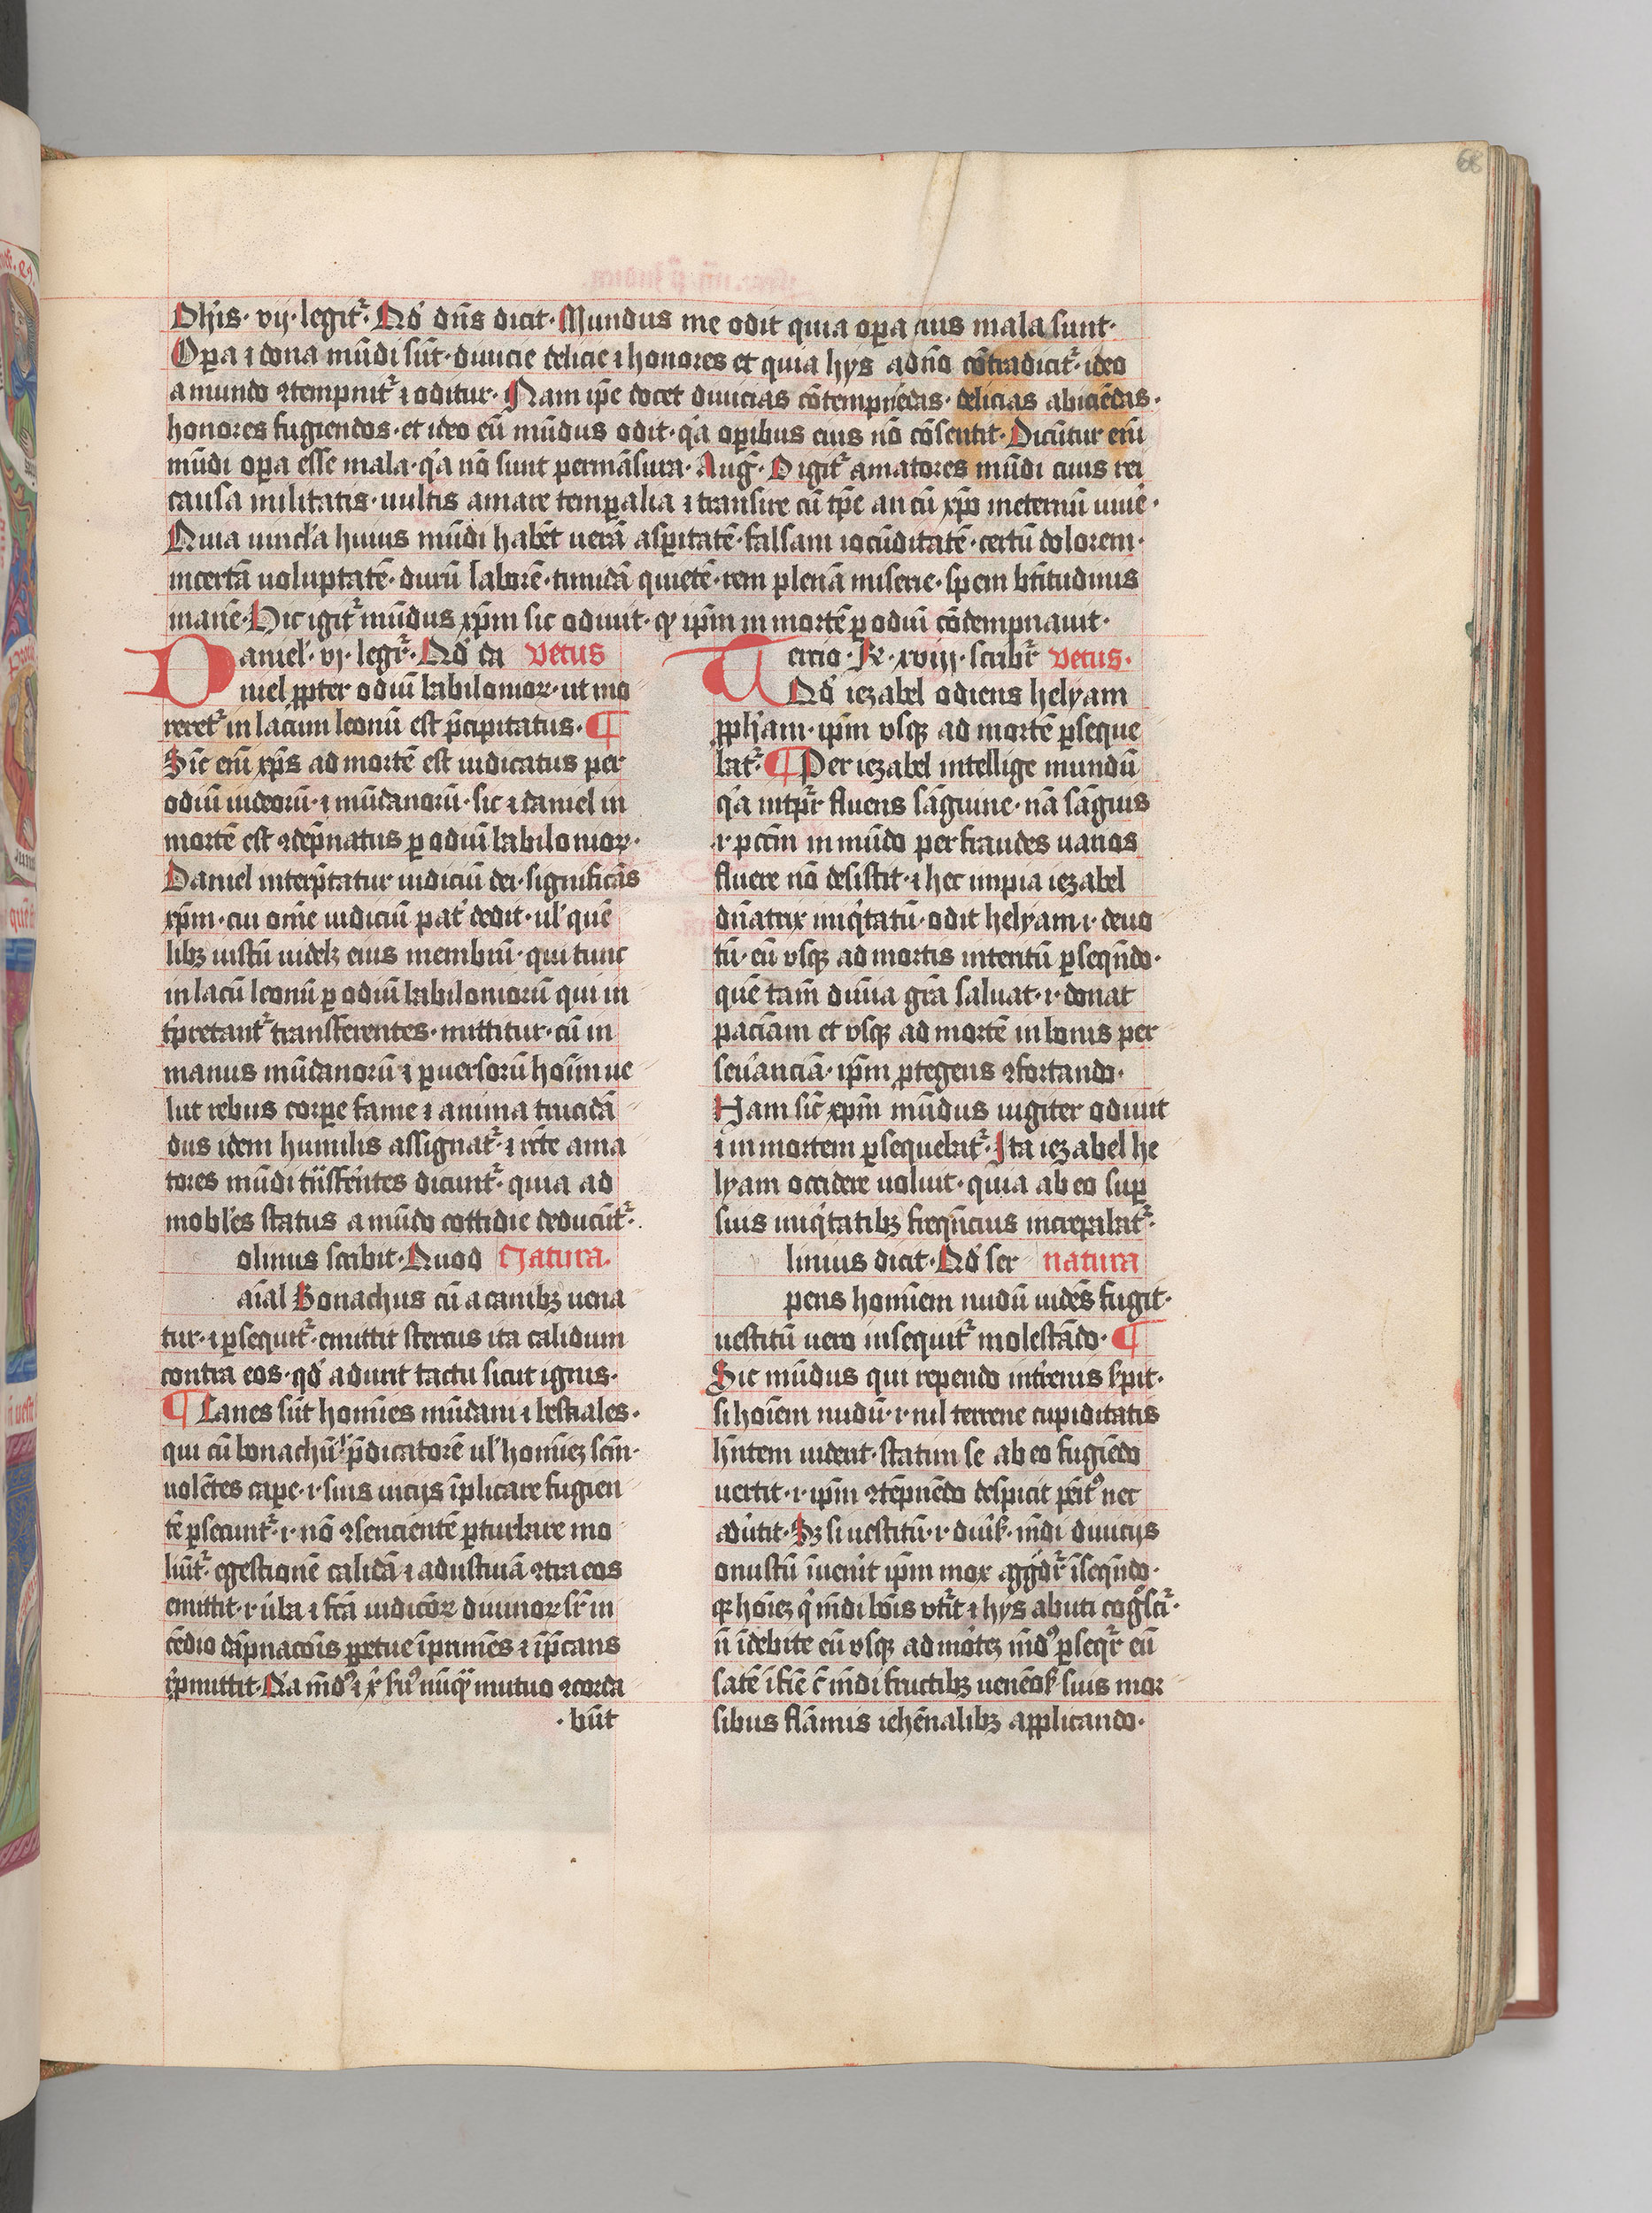 68
Ohīs · vij · legit᷑ · Qđ dn̄s dicit · Mundus me odit quia oꝑa eius mala sunt ·
Oꝑa ⁊ dona mūdi sūt · diuicie delicie ⁊ honores et quia hys adūo cōtradicit᷑ · ideo
a mundo ꝯtempnit᷑ ⁊ oditur · Nam ip̄e docet diuicias cōtempnēdas · delicias abiciēdas ·
honores fugiendos · et ideo eū mūdus odit · q̓a oꝑibus eius nō cōsentit · Dicūtur eni̅
mūdi oꝑa esse mala · q̓a nō sunt permāsura · Aug̅ · O igit᷑ amatores mūdi cuius rei
causa militatis · uultis amare temꝑalia ⁊ transire cū tp̄e an cū xp̄o ineternū uiuē ·
Quia uincl'a huius mūdi habēt uerā asꝑitatē · falsam iocūditatē · certū dolorem ·
incertā uoluptatē · durū laborē · timidā quietē · rem plenā miserie · spem btītudinis
inanē · Hic igit᷑ mūdus xp̄m sic odiuit · ꝙ ip̄m in mortē ꝑ odiū cōdempnauit ·
Daniel · vj · legit᷑ · Qđ da Vetus
niel ꝓpter odiū babilonioꝝ · ut mo
reret᷑ in lacum leonū est p̄cipitatus · ¶
Sic̄ eni̅ xp̄s ad mortē est iudicatus per
odiū iudeorū · ⁊ mūdanorū · sic ⁊ daniel in
mortē est ꝯdēpnatus ꝑ odiū babilonioꝝ ·
Daniel interp̄tatur iudiciū dei · significās
xp̄m · cui om̄e iudiciū pat̓ dedit · ul' quē
libꝫ iustū uidelꝫ eius membrū · qui tunc
in lacū leonū ꝑ odiū babiloniorū qui in
t̓pretant᷑ transferentes · mittitur · cū in
manus mūdanorū ⁊ ꝑuersorū hoīm ue
lut rebus corꝑe fame ⁊ anima trucidā
dus idem humilis assignat᷑ · ⁊ rc̄te ama
tores mūdi trāsferētes dicunt᷑ · quia ad
mobl'es status a mūdo cottidie deducūt᷑ ·
olinus scribit · Quod Natura ·
aīal Bonachus cū a canibꝫ uena
tur · ⁊ ꝑsequit᷑ · emittit stercus ita calidum
contra eos · qđ adurit tactu sicut ignis ·
¶ Canes sūt homīes mūdani ⁊ bestiales ·
qui cū bonachū · p̄dicatorē ul' homīeꝫ scm̄ ·
uolētes caꝑe · ⁊ suis uicijs īplicare fugien
tē ꝑsecunt᷑ · ⁊ · nō ꝯsencientē ꝑturbare mo
liūt᷑ · egestionē calidā ⁊ adustiuā ꝯtra eos
emittit · ⁊ ūba ⁊ fcā iudicōꝝ diuinoꝝ
cēdio dāpnacōis ꝑpetue īprimēs ⁊ īp̄cans
būt
Tercio · Re · xviij · scribit᷑ Vetus ·
Qđ iezabel odiens helyam
ꝓph̓am · ip̄m vsqꝫ ad mortē ꝑseque
bat᷑ · ¶ Per iezabel intellige mundū
q̓a intp̄r fluens sāguine · nā sāguis
⁊ · pccm̄ in mūdo per fraudes uarios
fluere nō desistit · ⁊ hec impia iezabel
dn̄atrix iniq̓tatū · odit helyam · ⁊ · deuo
tū · eū vsqꝫ ad mortis interitū ꝑseqn̄do ·
quē tam̄ diuīa grā saluat · ⁊ · donat
paciam et vsqꝫ ad mortē in bonis per
seūanciā · ip̄m ꝓtegens ꝯfortando ·
Nam sic̄ xp̄m mūdus iugiter odiuit
⁊ in mortem ꝑsequebat᷑ · Ita iezabel he
lyam occidere uoluit · quia ab eo suꝑ
suis iniq̓tatibꝫ freqn̄cius increpabat᷑ ·
linius dicit · Qđ ser natura
pens homīem nudū uidēs fugit ·
uestitū uero insequit᷑ molestādo · ¶
Sic mūdus qui rependo int̓ emīs s̓pit ·
si hoīem nudū · ⁊ · nil terrene cupiditatis
hn̄tem uiderit · statim se ab eo fugiēdo
uertit · ⁊ · ip̄m ꝯtēpnēdo despicit nec
adūtit · Sꝫ si uestitū · ⁊ · mūdi diuicijs
onustū īuenit ip̄m mox agg̓dr᷑ īseqn̄do ·
ī īdebite eū vsqꝫ ad mortē mūdꝰ ꝑseqr᷑ eū
mūdi fructibꝫ suis mor
sibus flāmis iehēnalibꝫ applicando ·